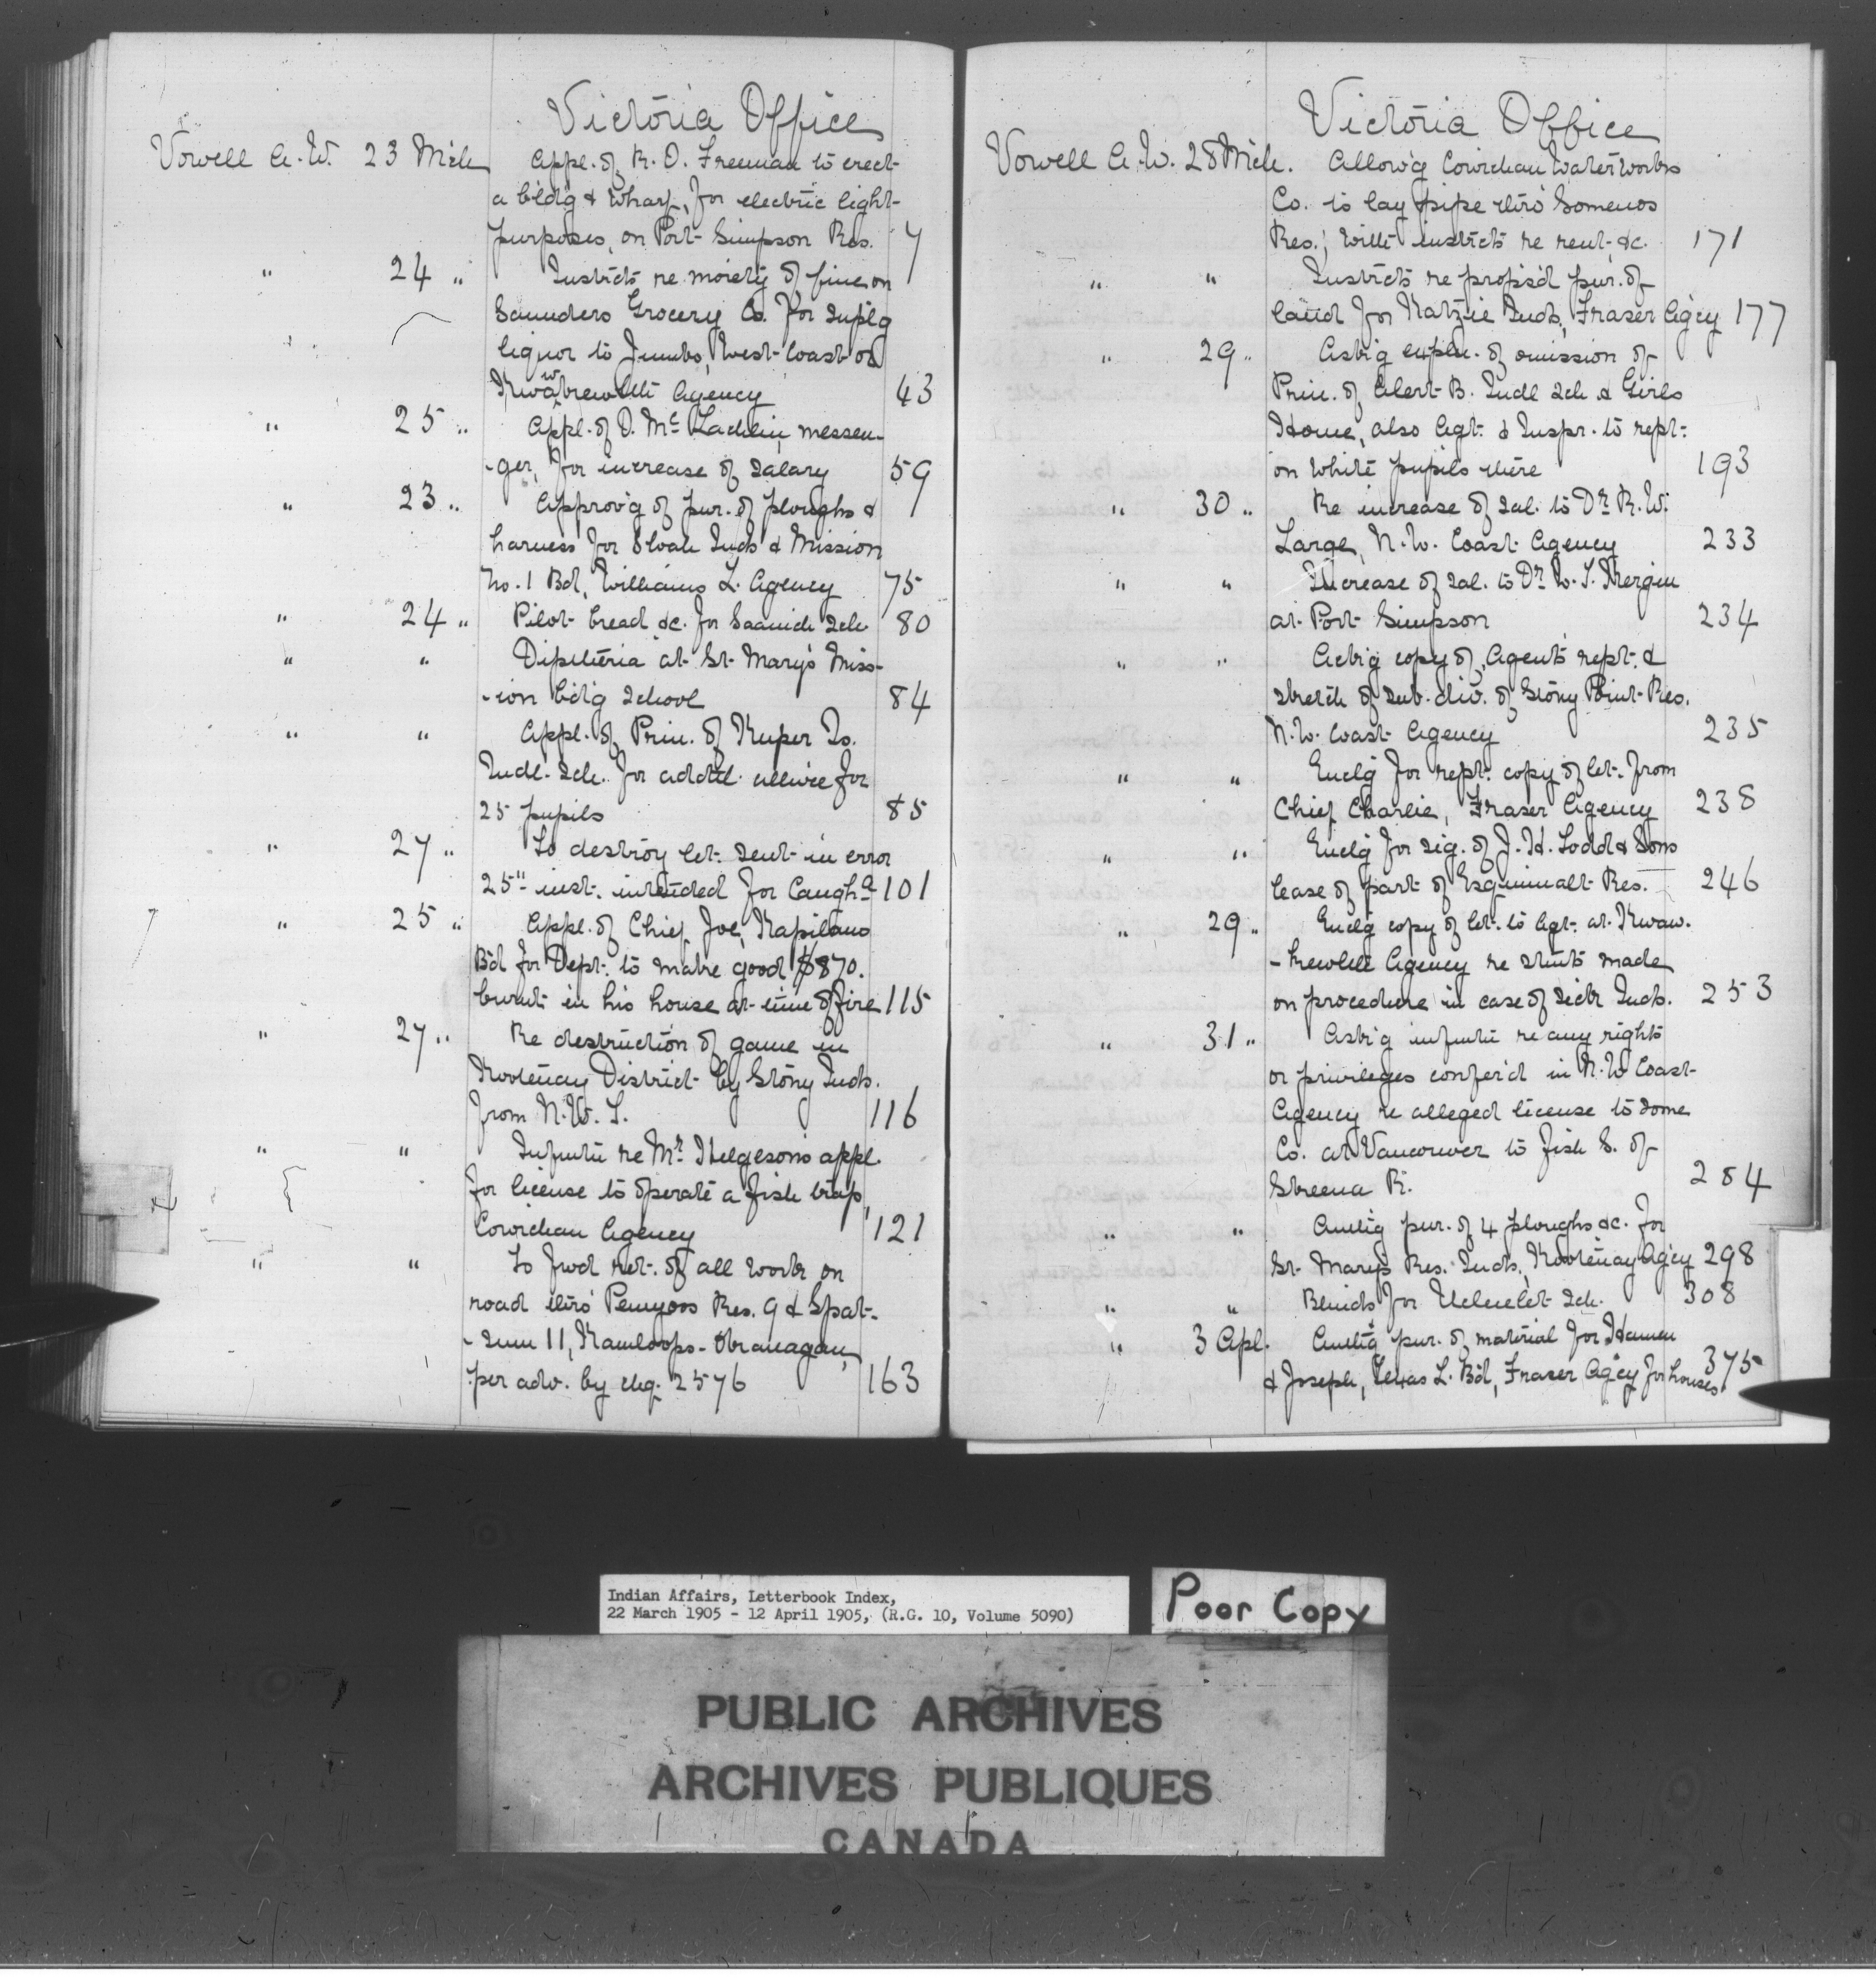 Victoria Office
Vowell A. W. 23 Mch Appl. of R. O. Freeman to erect
a bld'g & wharf, for electric light
purposes, on Port Simpson Res. 7
" 24 " Instrcts re moiety of fine on
Saunders Grocery Co. for suplg
liquor to Jumbo, West Coast or
Kwawkewlth Agency 43
" 25 " Appl. of D. McLachlin messen-
-ger, for increase of salary 59
" 23 " Approv'g of pur. of ploughs &
harness for Inds & Mission
No. 1 Bd, Williams L. Agency 75
" 24 " Pilot bread &c. for Saanich Sch. 80
" " Diptheria at St. Mary's Miss-
-ion bd'g School 84
" " Appl. of Prin. of Kuper Is.
Indl. Sch. for addtl. allwce for
25 pupils 85
" 27 " To destroy let. sent in error
25" inst. intended for Caugha 101
" 25 " Appl. of Chief Joe, Kapilano
Bd for Dept. to make good $870.
burnt in his house at time of fire 115
" 27 " Re destruction of game in
Kootenay District by Stony Inds.
from N. W. T. 116
" " Infmtn re Mr. Helgeson's appl.
for license to operate a fish trap,
Cowichan Agency 121
" " To fwd ret. of all work on
road thro' Penuyoos Res. 9 & Spat-
-sum 11, Kamloops-Okanagan,
per adv. by chq. 2576 163
Victoria Office
Vowell A. W. 28 Mch. Allow'g Cowichan Waterworks
Co. to lay pipe thro' Somenos
Res.; with instrcts re rent &c. 171
" " Instrcts re propos'd pur. of
land for Katzie Inds, Fraser Ag'cy 177
" 29 " Ask'g expln. of omission of
Prin. of Alert B. Indl Sch & Girls
Home, also Agt. & Inspr. to rept.
on white pupils there 193
" 30 " Re increase of sal. to Dr. R. W.
Large, N. W. Coast Agency 233
" " Increase of sal. to Dr. W. T. Kergin
at Port Simpson 234
" " Ack'g copy of Agent's rept. &
sketch of sub-div. of Stony Point Res.
N. W. Coast Agency 235
" " Enclg for rept. copy of let. from
Chief Charlie, Fraser Agency 238
" " Enclg for sig. of J. H. Todd & Sons
lease of part of Esquimalt Res. 246
" 29 " Enclg copy of let. to Agt. at Kwaw-
-kewlth Agency re stmts made
on procedure in case of sick Inds. 253
" 31 " Ask'g infmtn re any rights
or privileges confer'd in N. W. Coast
Agency re alleged license to some
Co. at Vancouver to fish S. of
Skeena R. 284
" " Authg pur. of 4 ploughs &c. for
St. Mary's Res. Inds., Kootenay Ag'cy 298
" " Blinds for Ucluelet Sch. 308
" 3 Apl. Authg pur. of material for
& Joseph, Texas L. Bd, Fraser Ag'cy for houses 375
Indian Affairs, Letterbook Index,
22 March 1905 - 12 April 1905, (R.G. 10, Volume 5090)
Poor Copy
PUBLIC ARCHIVES
ARCHIVES PUBLIQUES
CANADA